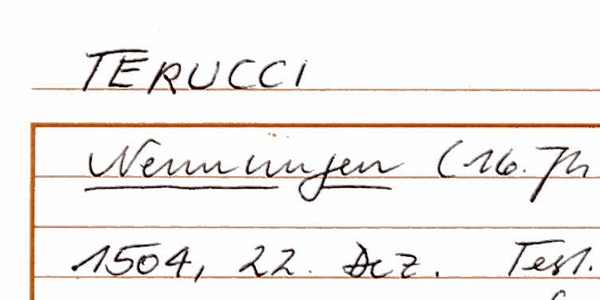 TERUCCI
Nenningen (16. Jh
1504, 22. Dez. Test.